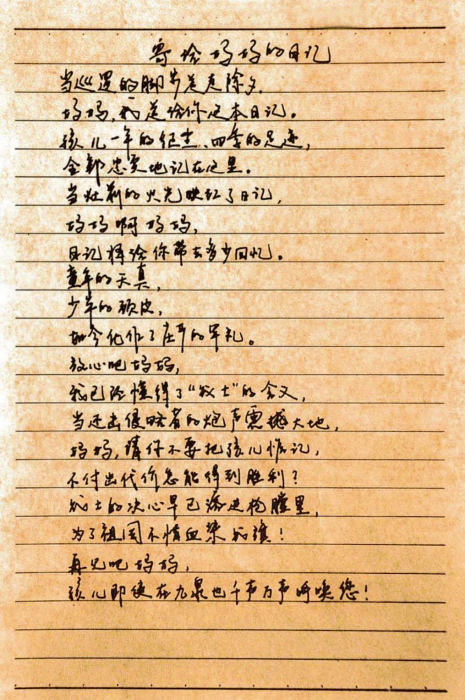 寄给妈妈的日记
当巡逻的脚步走走除夕,
妈妈,我送给你这本日记。
孩儿一年的征尘、四季的足迹,
全部忠实地记在这里。
当灶前的火光映红了日记,
妈妈啊妈妈,
日记将给你带去多少回忆。
童年的天真,
少年的顽皮,
如今化作了庄严的军礼。
放心吧妈妈,
我已经懂得了“战士”的含义,
当还击侵略者的炮声震撼大地,
妈妈,请你不要把孩儿惦记,
不付出代价怎能得到胜利?
战士的决心早已溶进枪膛里,
为了祖国不惜血染战旗!
再见吧妈妈,
孩儿即使在九泉也千声万声呼唤您!